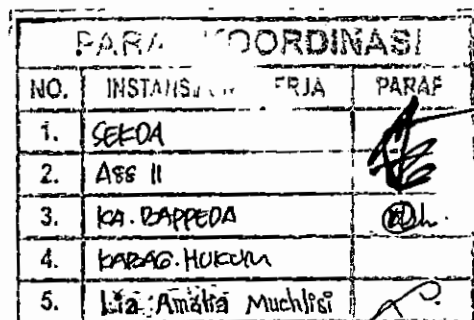 KOORDINASI
NO. PARAF
1. SEKDA
2. ASS II
3. KA. BAPPEDA
4. KABAG. HUKUM
5. Lia Amalia Muchlisi